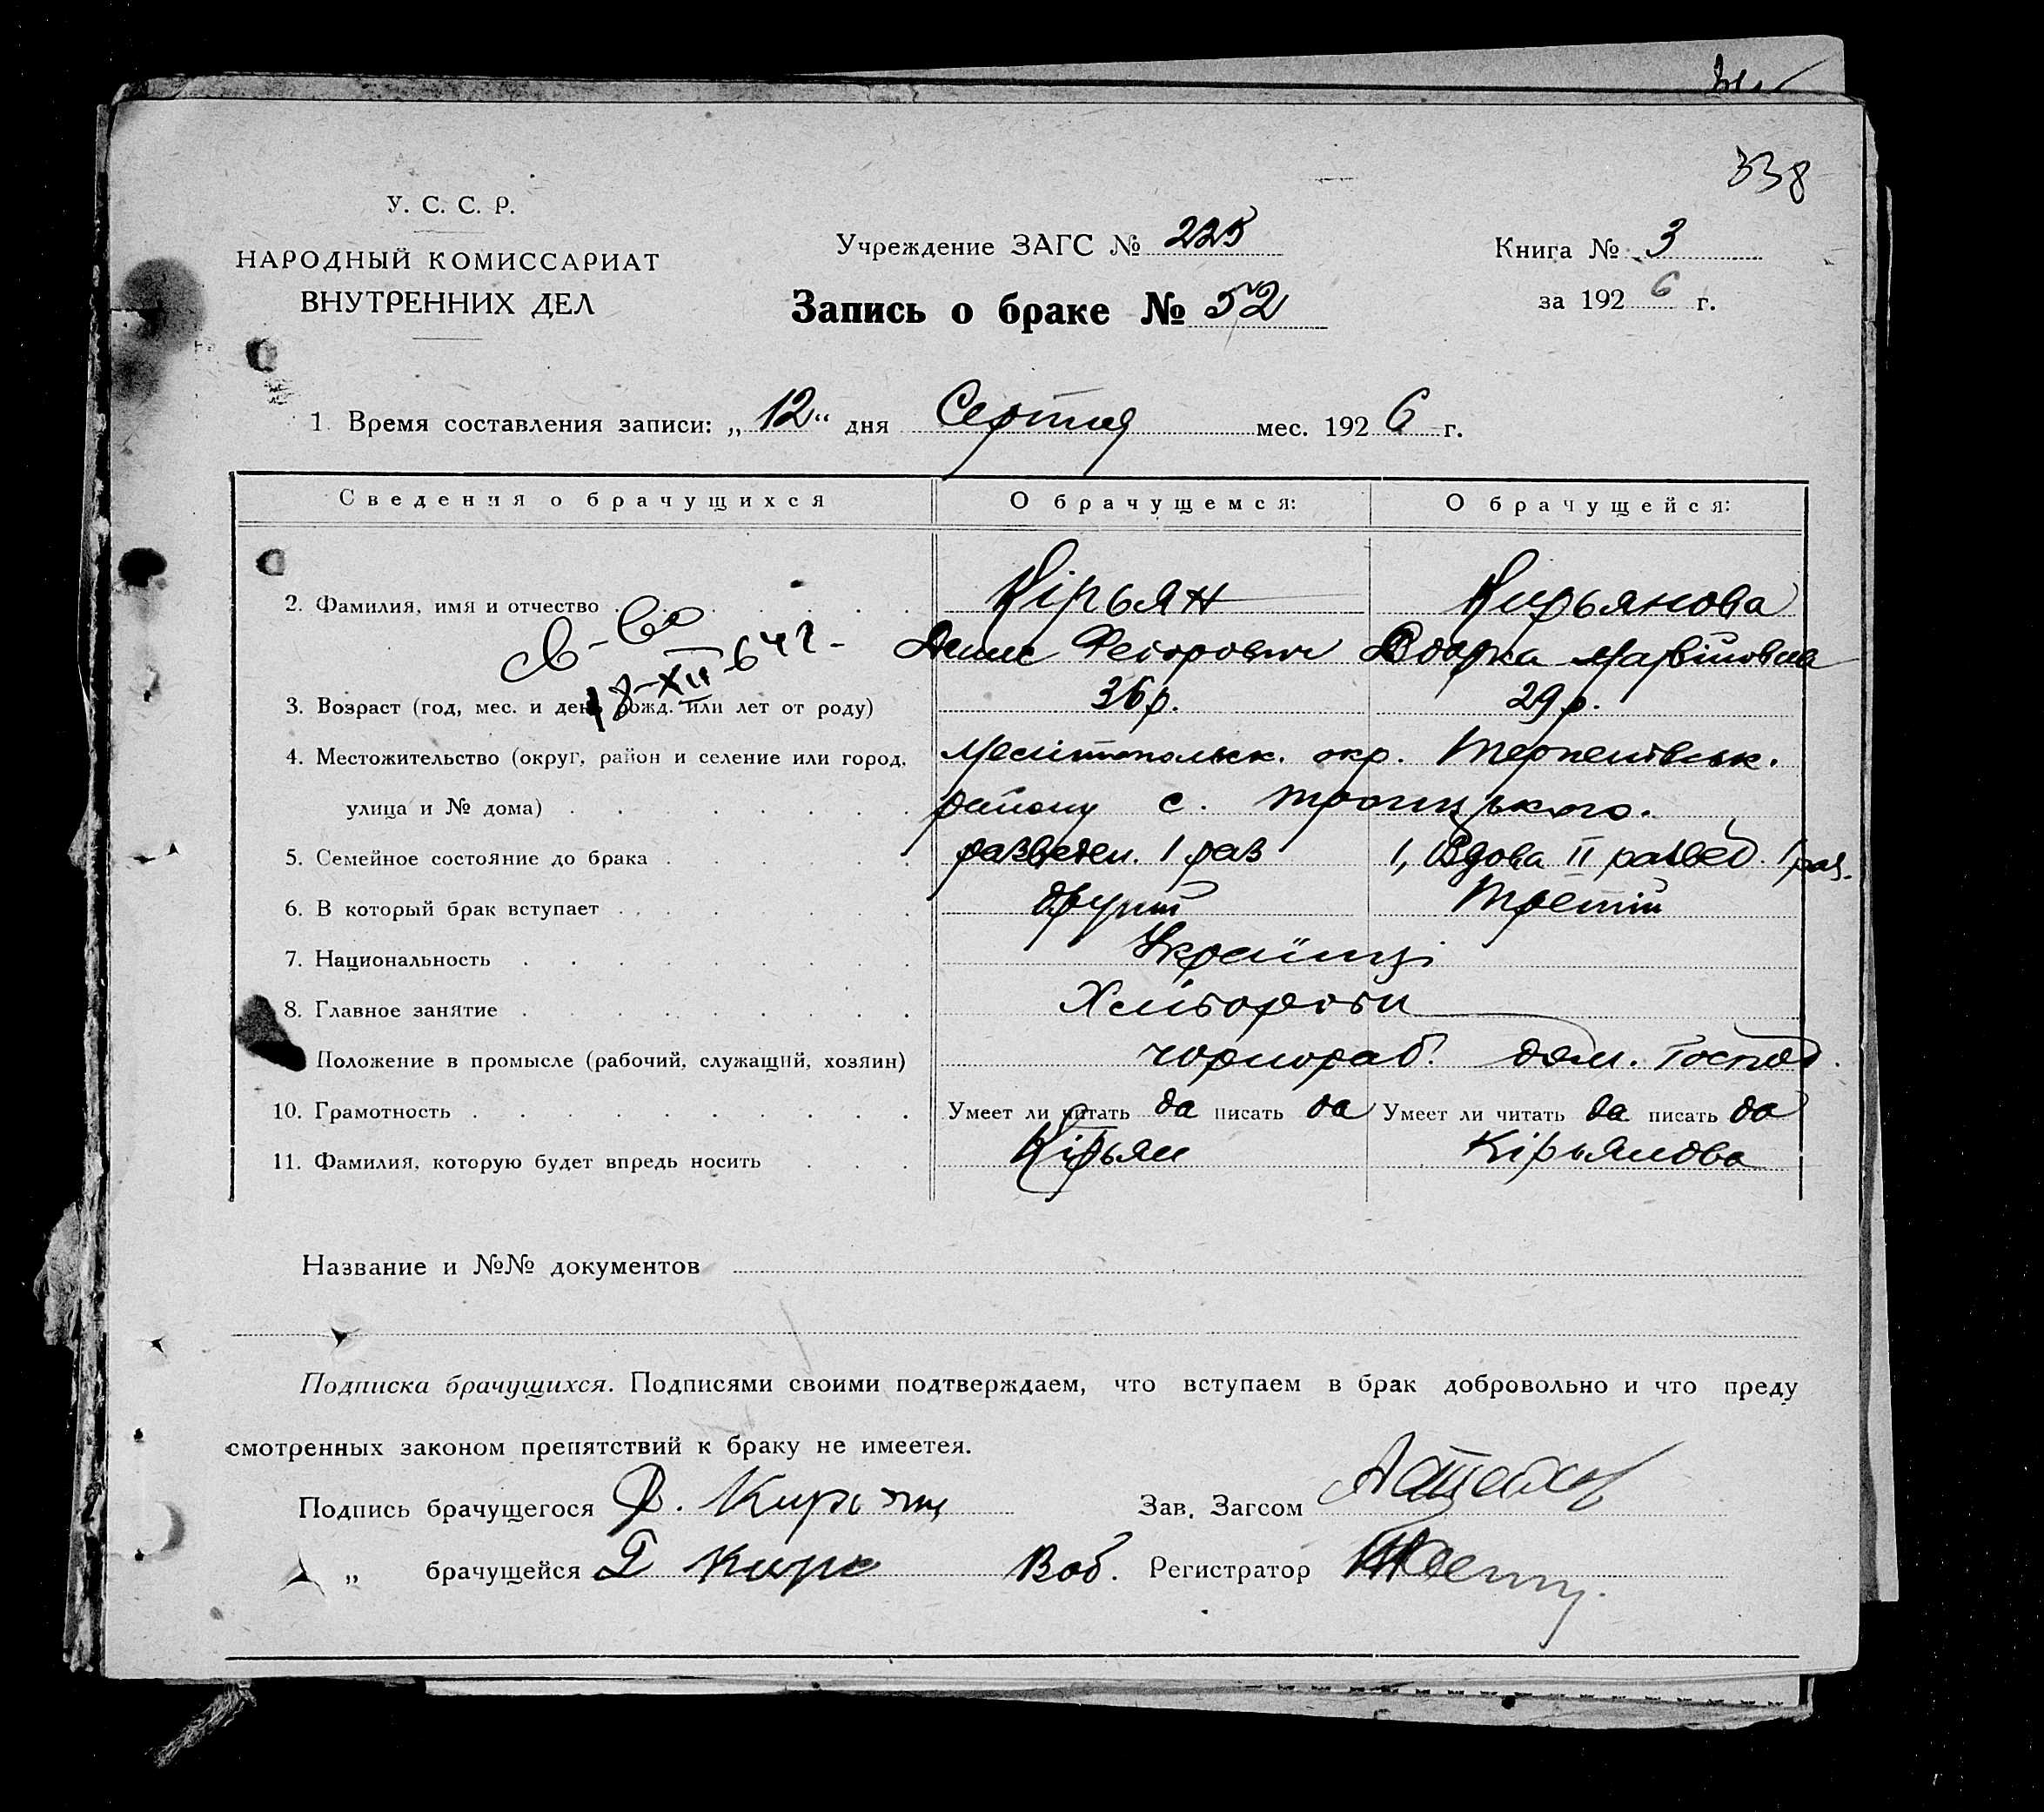 338
У. С. С. Р.
НАРОДНЫЙ КОМИССАРИАТ
ВНУТРЕННИХ ДЕЛ
Учреждение ЗАГС № 225
Запись о браке № 52
Книга № 3
за 1926 г.
1. Время составления записи: „12“ дня Серпня мес. 1926 г.
Сведения о брачущихся О брачущемся: О брачущейся:
2. Фамилия, имя и отчество Кірьян Кирьянова
Св-во Денис Федорович Матвіиовна
18-XII-64 г.
3. Возраст (год, мес. и день рожд. или лет от роду) 36 р. 29 р.
4. Местожительство (округ, район и селение или город, Мелітопольск. окр. Терпенівськ.
улица и № дома) району с. Троицького.
5. Семейное состояние до брака разведен. 1 раз 1, Вдова II развед. 1 раз.
6. В который брак вступает другий Третій
7. Национальность Українці
8. Главное занятие Хлібороби
Положение в промысле (рабочий, служащий, хозяин) чорнораб. дом. Господ.
10. Грамотность Умеет ли читать да писать да Умеет ли читать да писать да
11. Фамилия, которую будет впредь носить Кірьян Кірьянова
Название и №№ документов
Подписка брачущихся. Подписями своими подтверждаем, что вступаем в брак добровольно и что преду
смотренных законом препятствий к браку не имеетея.
Подпись брачущегося Д. Кирьян Зав. Загсом
„ брачущейся Кирь Регистратор